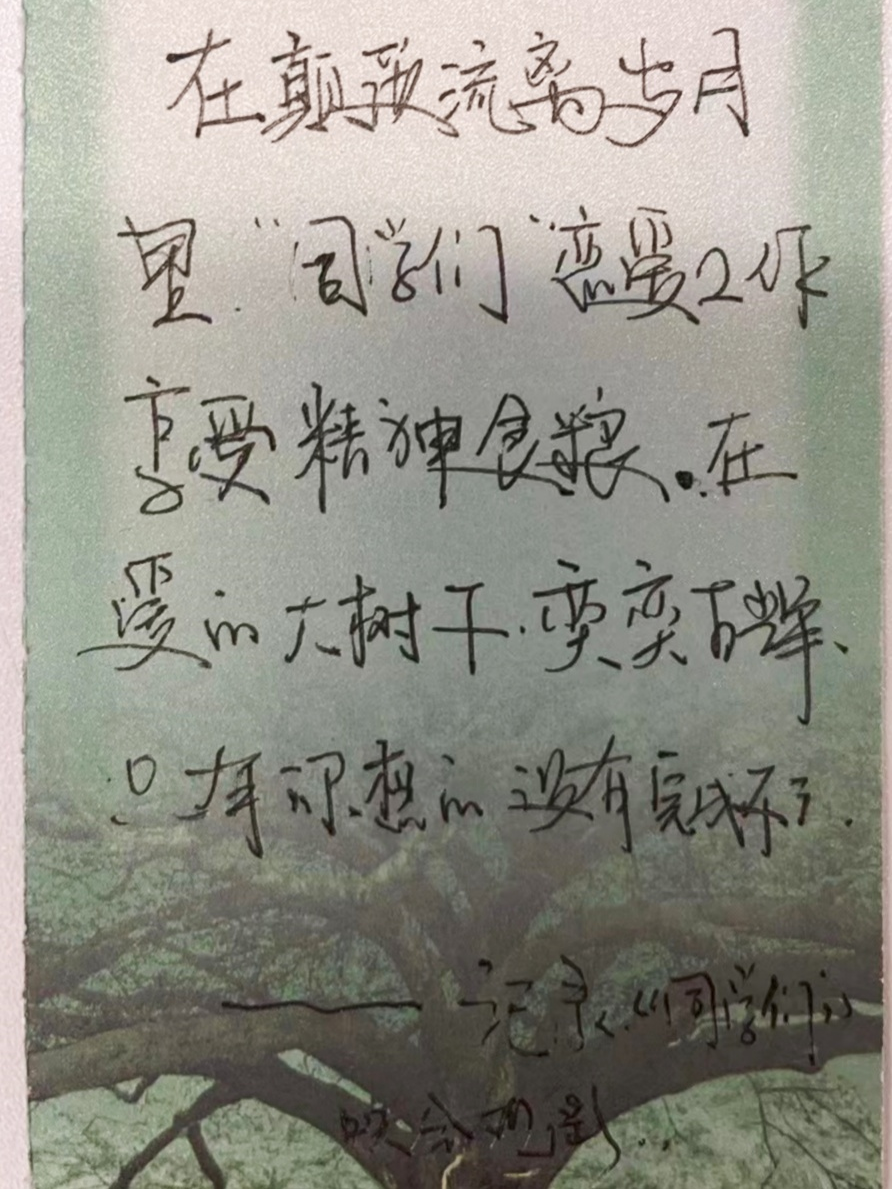 在颠沛流离岁月
里“同学们”恋爱工作
享受精神食粮.在
爱的大树下.变变有辈、
只有你想的没有完成不了.
——记录《“同学们”》